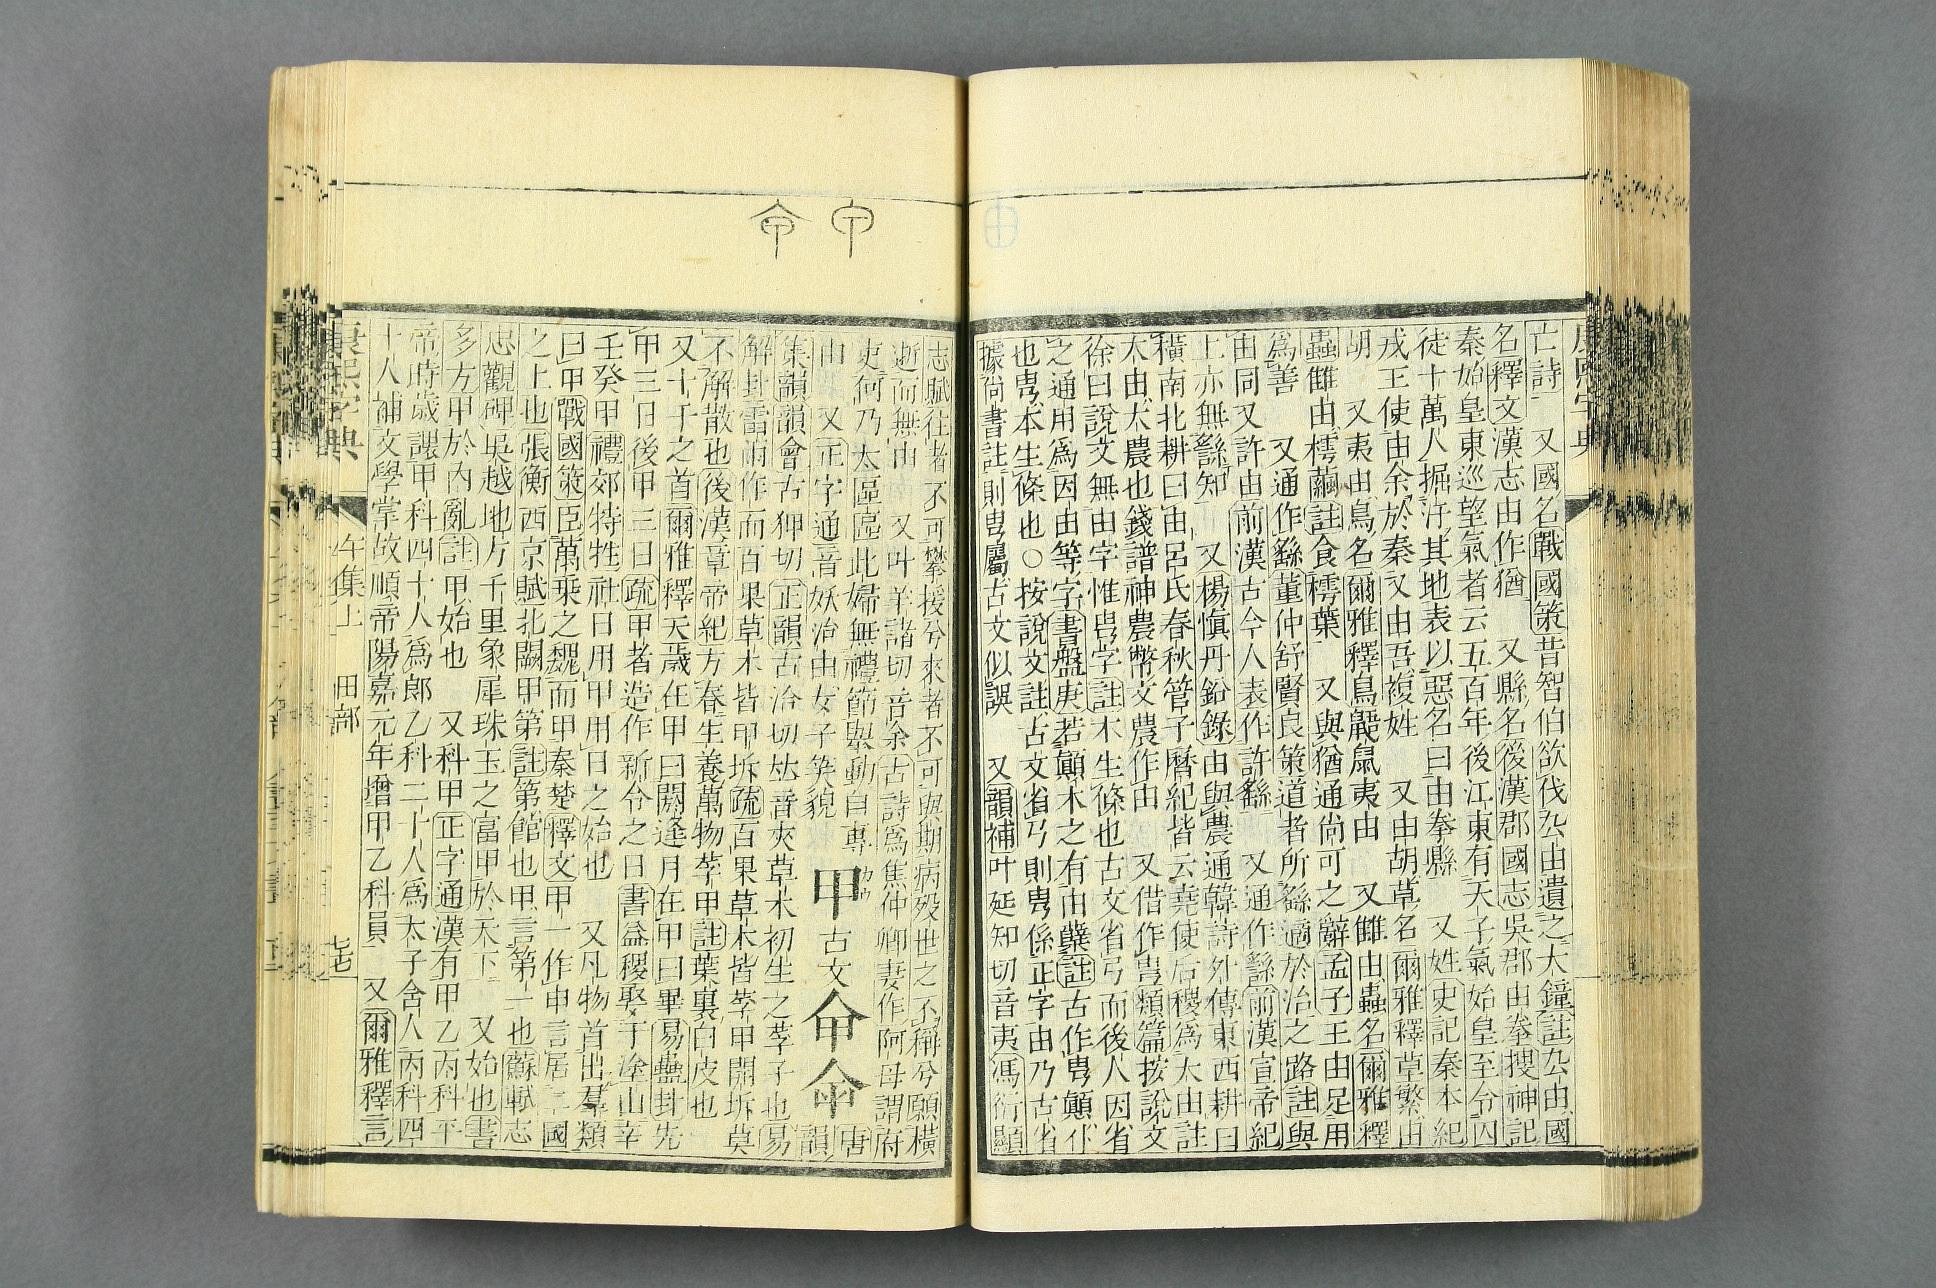 亡詩 又國名戰國策昔智伯欲伐厹由遺之大鐘註厹由國
名釋文漢志由作猶 又縣名後漢郡國志吳郡由拳搜神記
秦始皇東巡望氣者云五百年後江東有天子氣始皇至令囚
徒十萬人掘汙其地表以惡名曰由拳縣 又姓史記秦本紀
戎王使由余於秦又由吾複姓 又由胡草名爾雅釋草繁由
胡 又夷由鳥名爾雅釋鳥鼯鼠夷由 又雔由蟲名爾雅釋
蟲雔由樗繭註食樗葉 又與猶通尙可之辭孟子王由足用
爲善 又通作繇董仲舒賢良策道者所繇適於治之路註與
由同又許由前漢古今人表作許繇 又通作繇前漢宣帝紀
上亦無繇知 又楊愼丹鉛錄由與農通韓詩外傳東西耕曰
橫南北耕曰由呂氏春秋管子曆紀皆云堯使后稷爲大由註
大由大農也錢譜神農幣文農作由 又借作甹類篇按說文
徐曰說文無由字惟甹字註木生條也古文省弓而後人因省
之通用爲因由等字書盤庚若顚木之有由蘖註古作甹顚仆
也甹本生條也○按說文註古文省丂則甹係正字由乃古省
據尙書註則甹屬古文似誤 又韻補叶延知切音夷馮衍顯
志賦往者不可攀援兮來者不可與期病歿世之不稱兮願橫
逝而無由 又叶羊諸切音余古詩爲焦仲卿妻作阿母謂府
吏何乃太區區此婦無禮節舉動自專由 甲古文命𠇚唐
由 又正字通音妖冶由女子笑貌 韻
集韻韻會古狎切正韻古洽切𠀤音夾草木初生之莩子也易
解卦雷雨作而百果草木皆甲坼疏百果草木皆莩甲開坼莫
不解散也後漢章帝紀方春生養萬物莩甲註葉裏白皮也
又十干之首爾雅釋天歲在甲曰閼逢月在甲曰畢易蠱卦先
甲三日後甲三日疏甲者造作新令之日書益稷娶于塗山辛
壬癸甲禮郊特牲社日用甲用日之始也 又凡物首出羣類
曰甲戰國策臣萬乗之魏而甲秦楚釋文甲一作申言居二國
之上也張衡西京賦北闕甲第註第館也甲言第一也蘇軾志
忠觀碑吳越地方千里象犀珠玉之富甲於天下 又始也書
多方甲於內亂註甲始也 又科甲正字通漢有甲乙丙科平
帝時歲課甲科四十人爲郎乙科二十人爲太子舍人丙科四
十人補文學掌故順帝陽嘉元年增甲乙科員 又爾雅釋言
康熙字典 午集上 田部 七